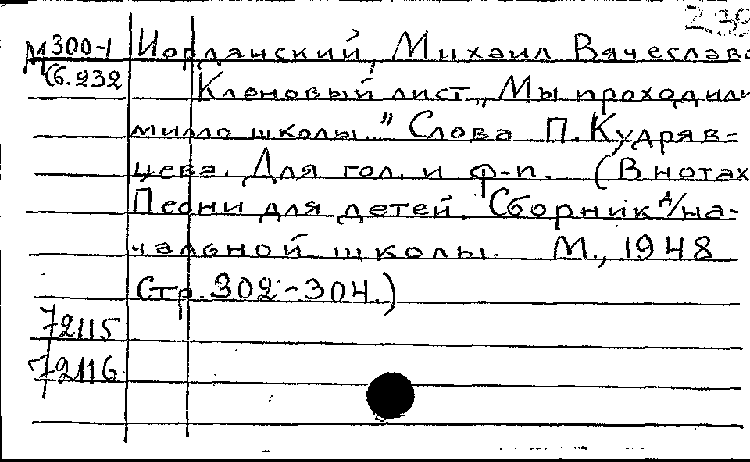 М 300-1
Сб. 232
Иорданский, Михаил Вячеслав
Кленовый лист „Мы проходили
мимо школы." Слова П. Кудряв-
цева. Для гол. и ф-п. (В нотах
Песни для детей. Сборник д/на-
чальной школы. М., 1948
Стр. 302-304.)
72115
72116